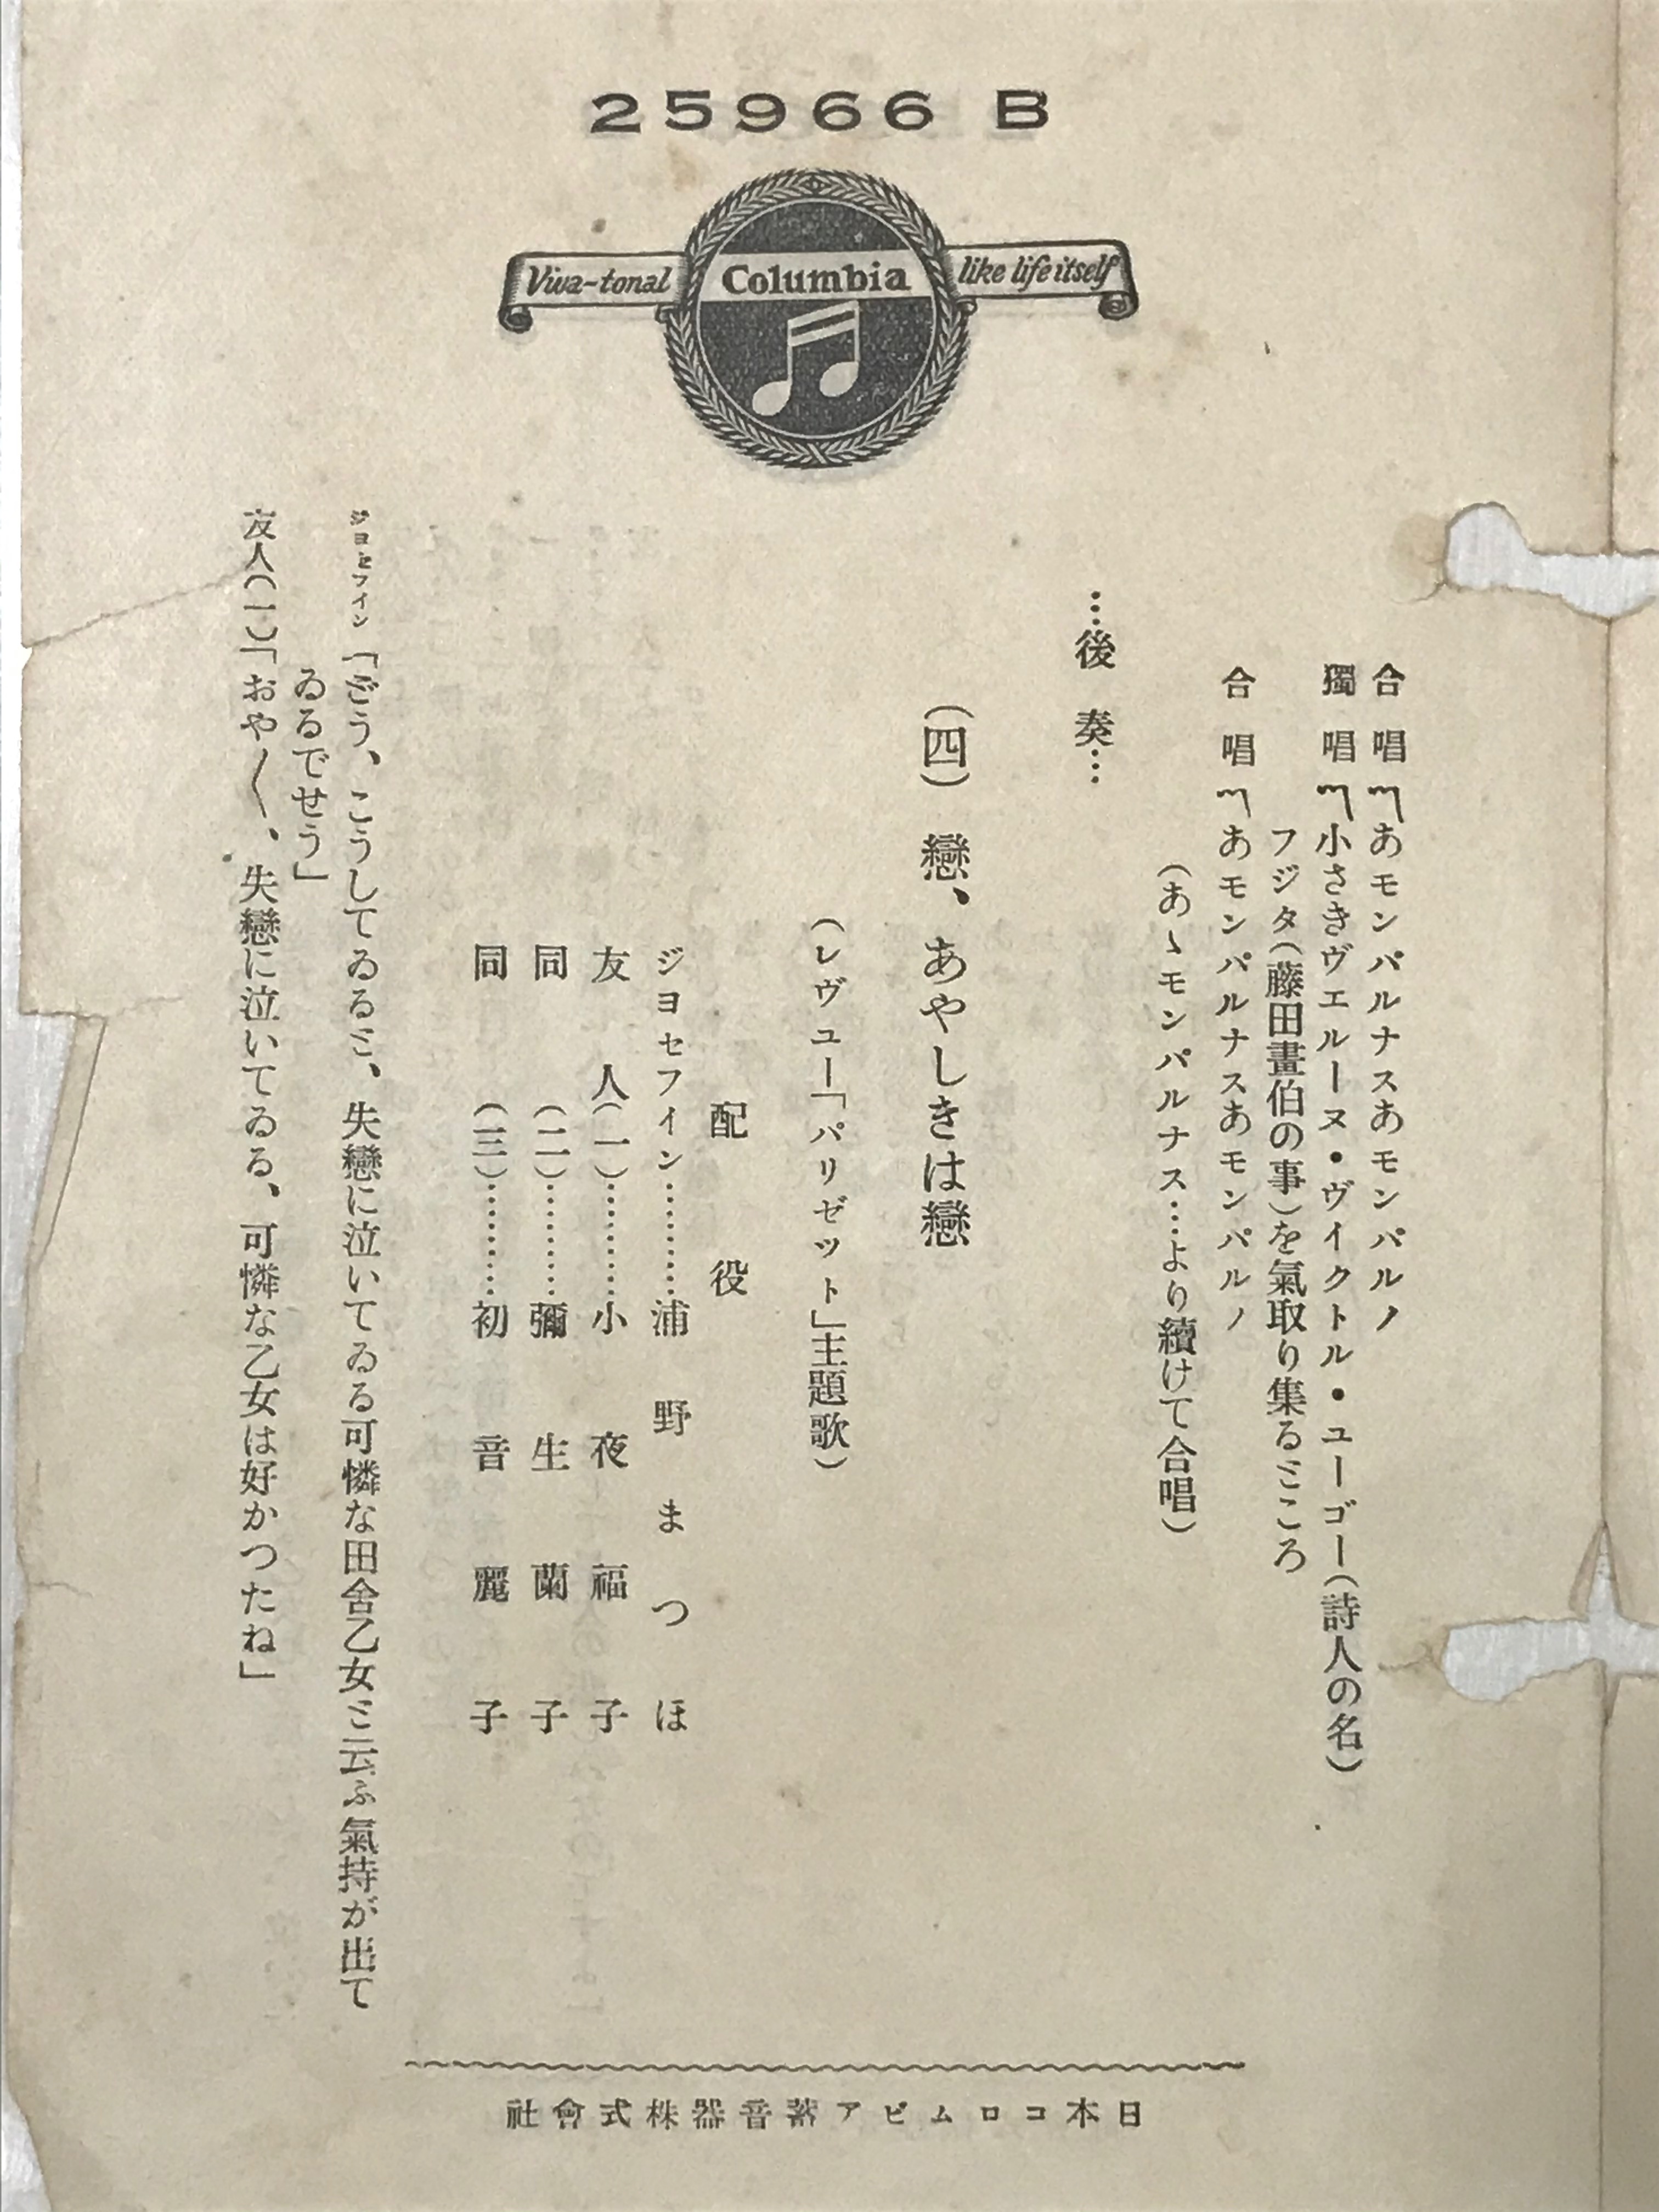 25966 B
Viva-tonal Columbia like life itself
合唱〽あモンパルナスあモンパルノ
獨唱〽小さきヴエルーヌ・ヴイクトル・ユーゴー(詩人の名)
フジタ(藤田畫伯の事)を氣取り集るところ
合唱〽あモンパルナスあモンパルノ
(あゝモンパルナス…より續けて合唱)
…後奏…
(四) 戀、あやしきは戀
(レヴユー「パリゼツト」主題歌)
配役
ジヨセフイン………浦野まつほ
友人(一)………小夜福子
同(二)………彌生蘭子
同(三)………初音麗子
ジヨセフイン「どう、こうしてゐると、失戀に泣いてゐる可憐な田舍乙女と云ふ氣持が出て
ゐるでせう」
友人(一)「おや〳〵、失戀に泣いてゐる、可憐な乙女は好かつたね」
日本コロムビア蓄音器株式會社